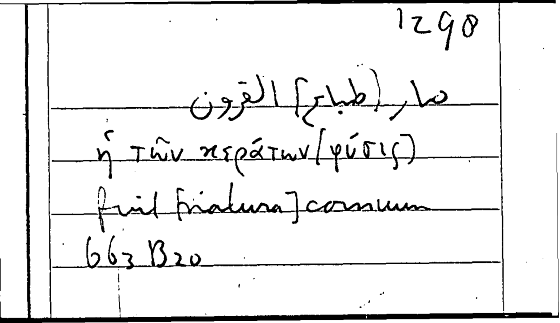 1290
صار (طباع) القرون
ἡ τῶν κεράτων (φύσις)
fuit [natura] cornuum
663 B20